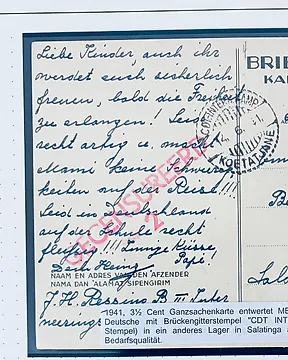 Liebe Kinder, auch ihr
werdet euch sicherlich
freuen, bald die Freiheit
zu erlangen! Seid
recht artig u. macht
Mami keine Schwierig
keiten auf der Reise!!!
Seid in Deutschland
auf der Schule recht
fleißig!!! Innige Küsse,
Papi!
GECENSUREERD
2
BRIE
KA
KOETATJANE
NAAM EN ADRES VAN DEN AFZENDER
NAMA DAN ALAMAT SIPENGIRIM
B III Inter
neerings
1941, 3½ Cent Ganzsachenkarte entwertet ME
Deutsche mit Brückengitterstempel "CDT INT
Stempel) in ein anderes Lager in Salatinga a
Bedarfsqualität.